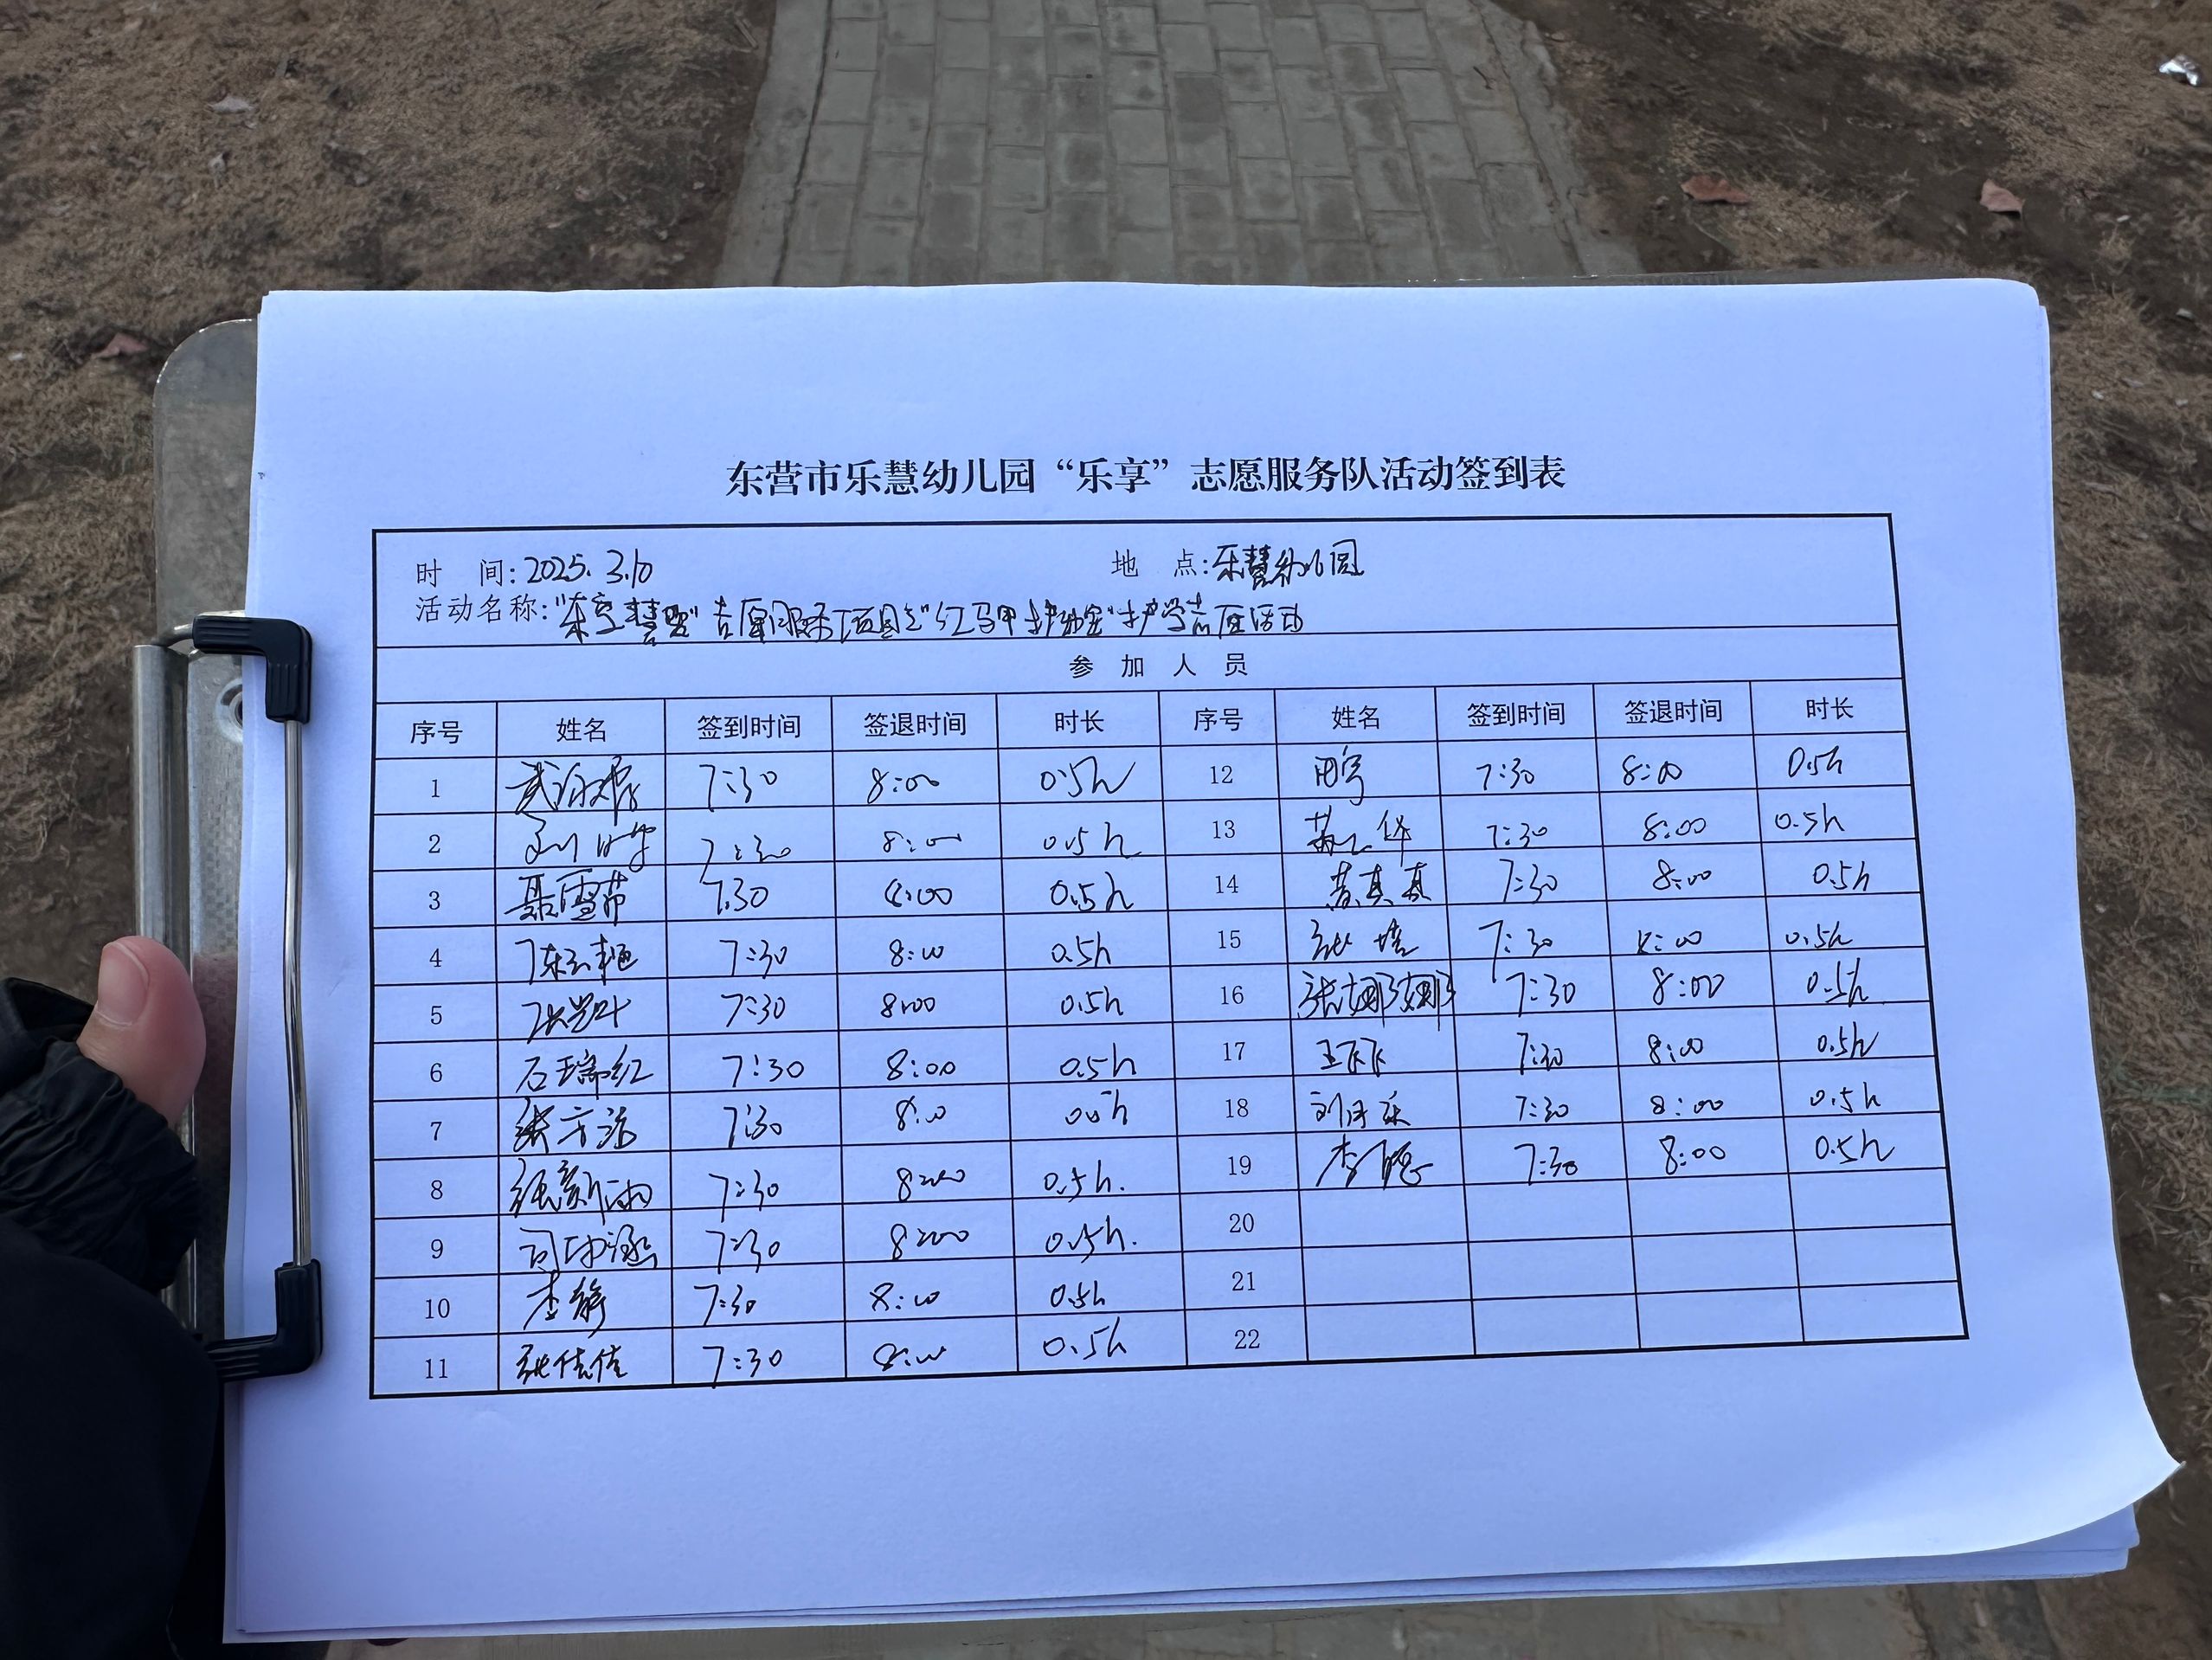 东营市乐慧幼儿园“乐享”志愿服务队活动签到表
时 间: 2025.3.10 地 点: 乐慧幼儿园
活动名称: "乐享慧爱"志愿服务项目之"红马甲护幼童"护学志愿活动
参 加 人 员
序号 姓名 签到时间 签退时间 时长 序号 姓名 签到时间 签退时间 时长
1 7:30 8:00 0.5h 12 田宁 7:30 8:00 0.5h
2 7:30 8:00 0.5h 13 7:30 8:00 0.5h
3 聂雪茹 7:30 8:00 0.5h 14 7:30 8:00 0.5h
4 陈云艳 7:30 8:00 0.5h 15 张 7:30 8:00 0.5h
5 7:30 8:00 0.5h 16 张娜娜 7:30 8:00 0.5h
6 石瑞红 7:30 8:00 0.5h 17 王飞飞 7:30 8:00 0.5h
7 张方 7:30 8:00 0.5h 18 刘 乐 7:30 8:00 0.5h
8 张新雨 7:30 8:00 0.5h. 19 李 7:30 8:00 0.5h
9 司 涵 7:30 8:00 0.5h. 20
10 李 7:30 8:00 0.5h 21
11 张佳佳 7:30 8:00 0.5h 22